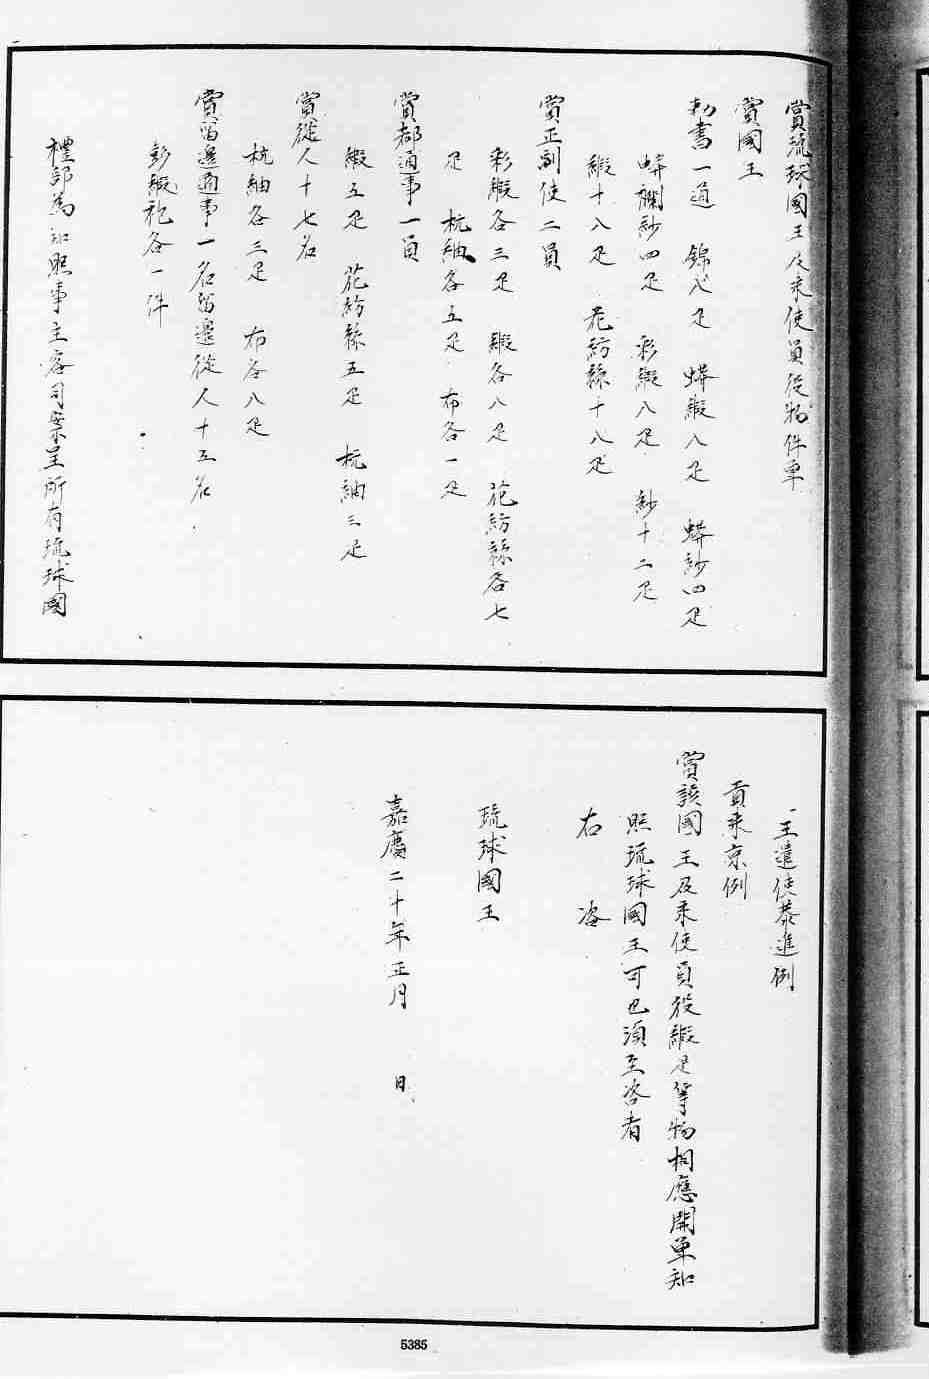 賞琉球國王及来使員從物件單
賞國王
勅書一通 錦八疋 蟒緞八疋 蟒紗四疋
蟒襴紗四疋 彩緞八疋 紗十二疋
緞十八疋 花紡絲十八疋
賞正副使二員
彩緞各三疋 緞各八疋 花紡絲各七
疋 杭紬各五疋 布各一疋
賞都通事一員
緞五疋 花紡絲五疋 杭紬三疋
賞從人十七名
杭紬各三疋 布各八疋
賞留邊通事一名留邊從人十五名
彭緞袍各一件
禮部為知照事主客司案呈所有琉球國
王遣使恭進例
貢来京例
賞該國王及来使員役緞疋等物相應開單知
照琉球國王可也須至咨者
右 咨
琉球國王
嘉慶二十年正月 日
5385